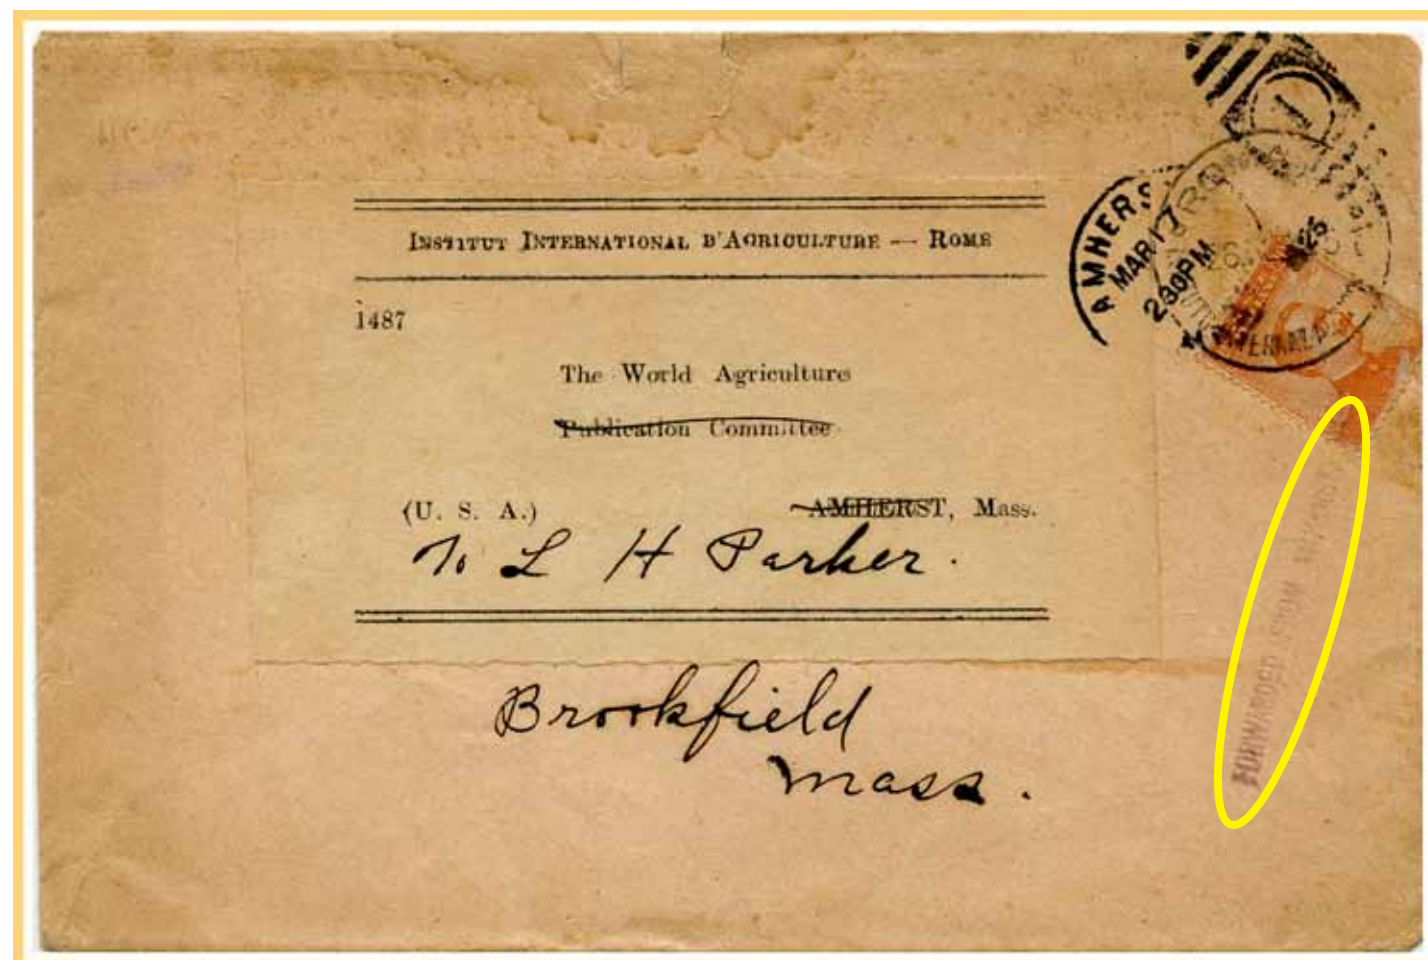 INSTITUT INTERNATIONAL D'AGRICULTURE — ROME
1487
The World Agriculture
Publication Committee
(U. S. A.) AMHERST, Mass.
L H Parker.
Brookfield
Mass.
AMHERS
MAR 17
230PM
1
25
FORWARDED